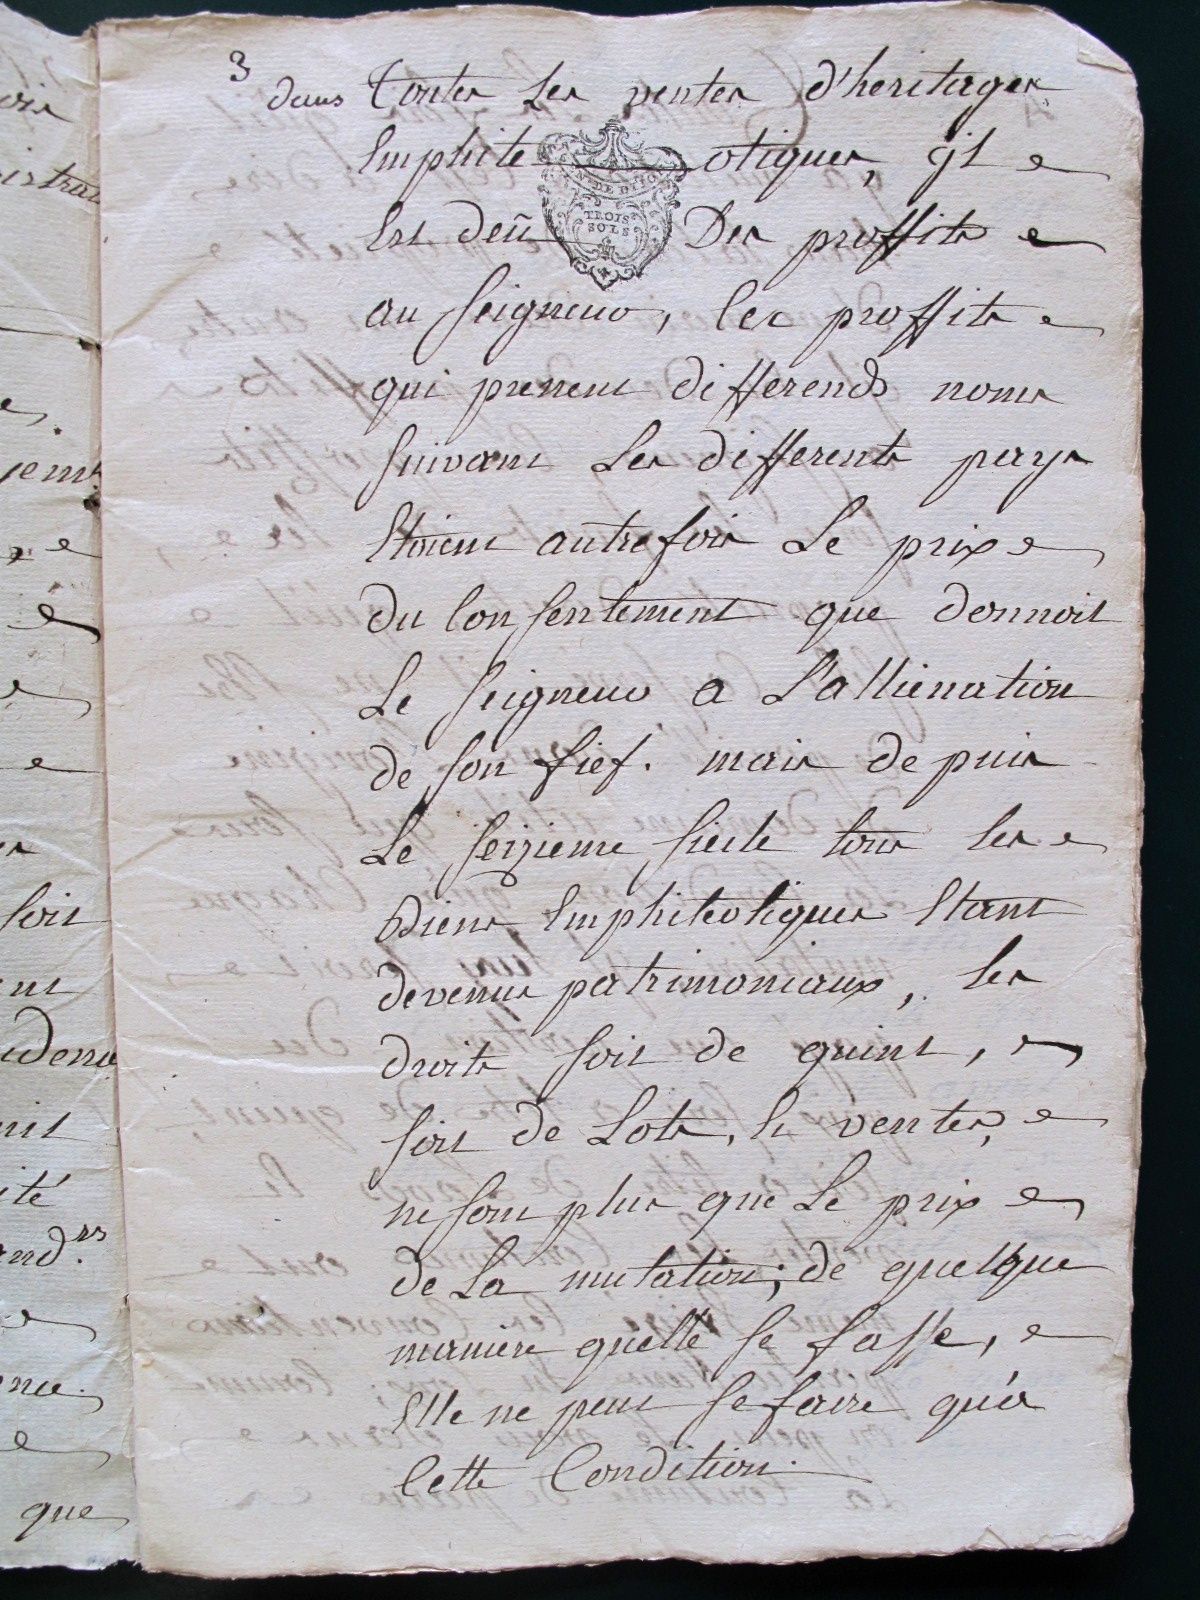 3
dans Toutes Les ventes d'heritages
Emphite otiques, jl
Est deü Des proffits
au seigneur, Ces proffits
qui prenent differends noms
suivant Les differents pays
Etoient autrefois Le prix
du Consentement que donnoit
Le seigneur a L'allienation
de son fief. mais depuis
Le seizieme siecle tous les
Biens Emphiteotiques Etant
devenus patrimoniaux, les
droits soit de quint,
soit de Lots, Et ventes,
ne sont plus que Le prix
de La mutation; de quelque
maniere quelle se fasse,
Elle ne peut se faire qu'a
Cette Condition.
TROIS
SOLS
soit
ité
que